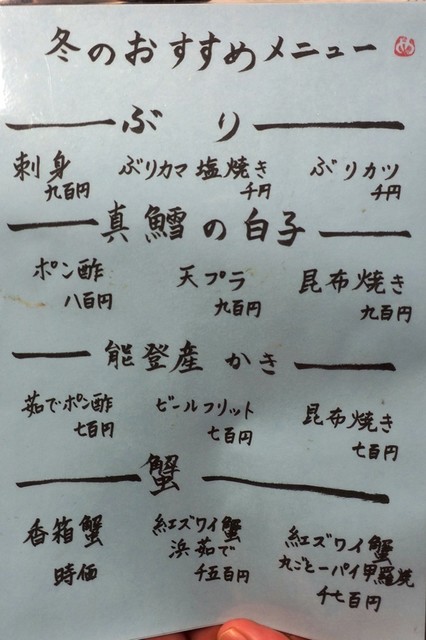 冬のおすすめメニュー
ぶり
刺身 ぶりカマ塩焼き ぶりカツ
九百円 千円 千円
真鱈の白子
ポン酢 天プラ 昆布焼き
八百円 九百円 九百円
能登産 かき
茹でポン酢 ビールフリット 昆布焼き
七百円 七百円 七百円
蟹
香箱蟹
時価
紅ズワイ蟹
浜茹で
千五百円
紅ズワイ蟹
丸ごと一パイ甲羅焼
千七百円